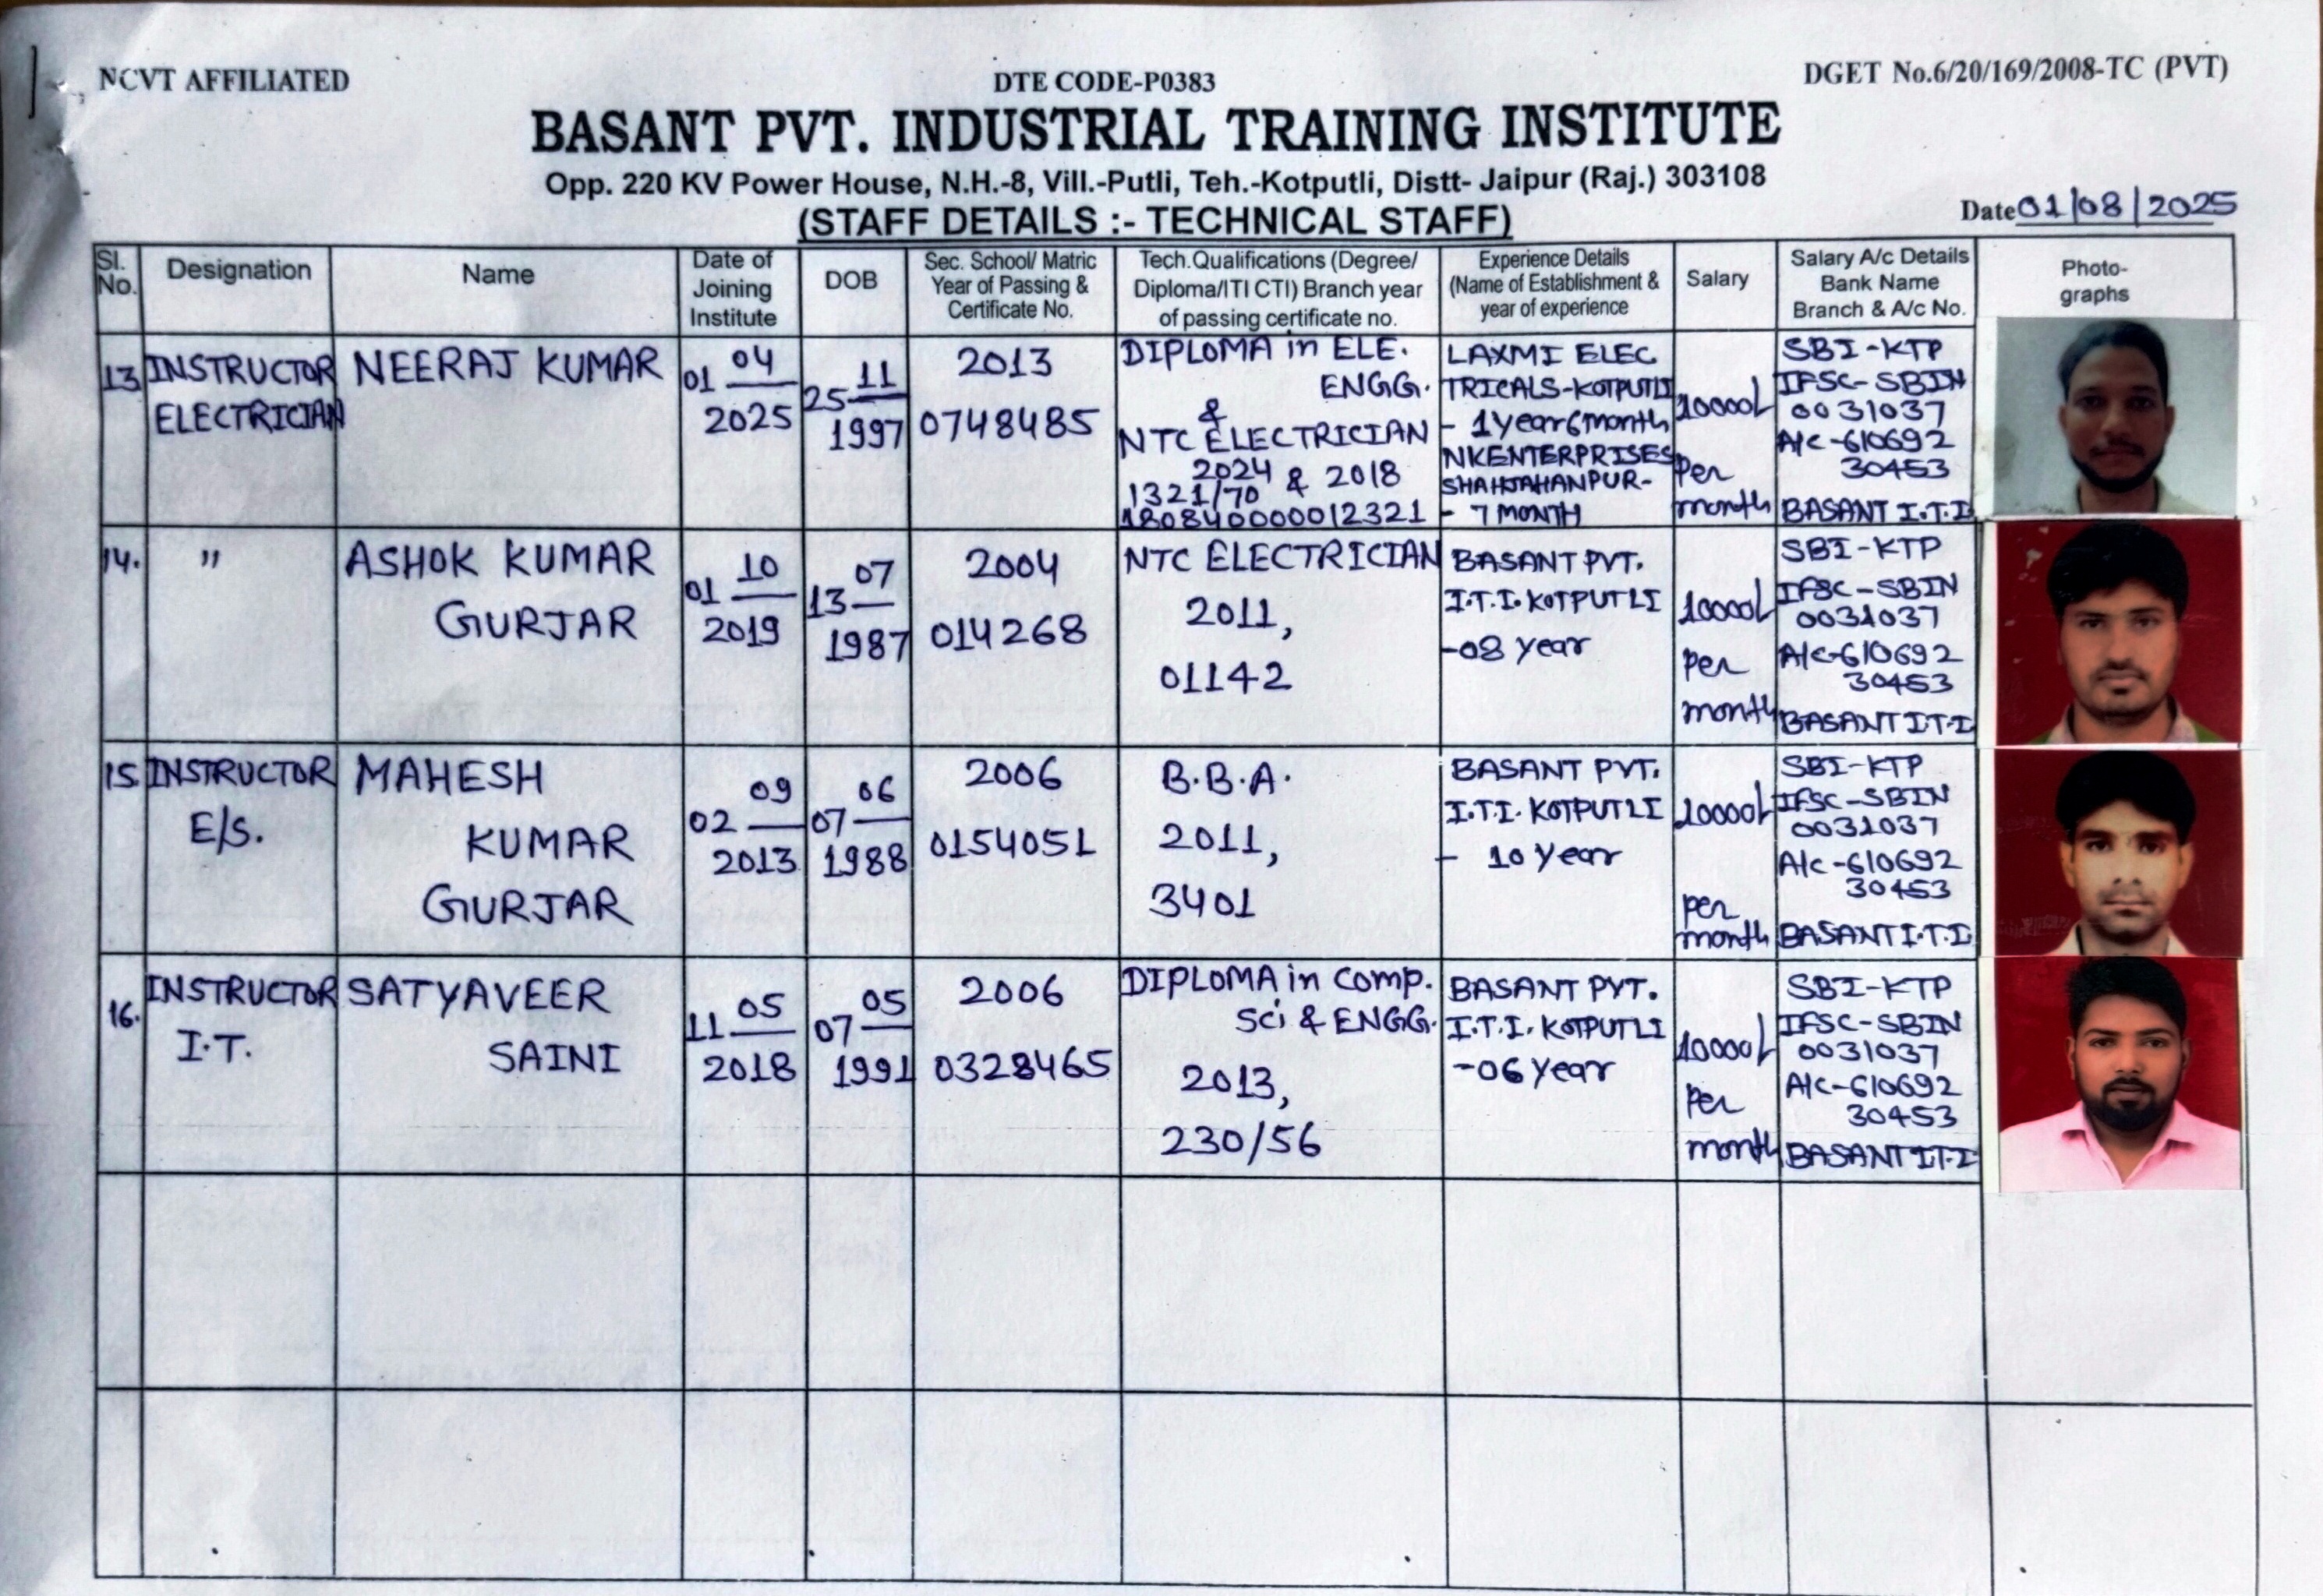 NCVT AFFILIATED
DTE CODE-P0383
DGET No.6/20/169/2008-TC (PVT)
BASANT PVT. INDUSTRIAL TRAINING INSTITUTE
Opp. 220 KV Power House, N.H.-8, Vill.-Putli, Teh.-Kotputli, Distt- Jaipur (Raj.) 303108
(STAFF DETAILS :- TECHNICAL STAFF)
Date 01/08/2025
Sl.
No.
Designation
Name
Date of
Joining
Institute
DOB
Sec. School/ Matric
Year of Passing &
Certificate No.
Tech.Qualifications (Degree/
Diploma/ITI CTI) Branch year
of passing certificate no.
Experience Details
(Name of Establishment &
year of experience
Salary
Salary A/c Details
Bank Name
Branch & A/c No.
Photo-
graphs
13
INSTRUCTOR
ELECTRICIAN
NEERAJ KUMAR
01 04
2025
25 11
1997
2013
0748485
DIPLOMA in ELE.
ENGG.
&
NTC ELECTRICIAN
2024 & 2018
1321/70
180840000012321
LAXMI ELEC
TRICALS-KOTPUTLI
- 1year6month
NKENTERPRISES
SHAHJAHANPUR-
- 7 MONTH
10000/
per
month
SBI-KTP
IFSC-SBIN
0031037
A/c-610692
30453
BASANT I.T.I
14.
"
ASHOK KUMAR
GURJAR
01 10
2019
13 07
1987
2004
014268
NTC ELECTRICIAN
2011,
01142
BASANT PVT.
I.T.I. KOTPUTLI
-08 year
10000/
per
month
SBI-KTP
IFSC-SBIN
0031037
A/c-610692
30453
BASANT I.T.I
15.
INSTRUCTOR
E/S.
MAHESH
KUMAR
GURJAR
02 09
2013
07 06
1988
2006
0154051
B.B.A.
2011,
3401
BASANT PVT.
I.T.I. KOTPUTLI
- 10 year
10000/
per
month
SBI-KTP
IFSC-SBIN
0031037
A/c-610692
30453
BASANT I.T.I
16.
INSTRUCTOR
I.T.
SATYAVEER
SAINI
11 05
2018
07 05
1991
2006
0328465
DIPLOMA in Comp.
Sci & ENGG.
2013,
230/56
BASANT PVT.
I.T.I. KOTPUTLI
-06 year
10000/
per
month
SBI-KTP
IFSC-SBIN
0031037
A/c-610692
30453
BASANT I.T.I